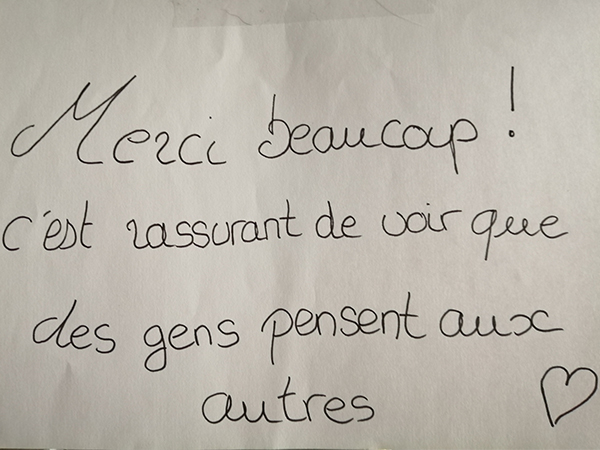 Merci beaucoup !
c'est rassurant de voir que
des gens pensent aux
autres